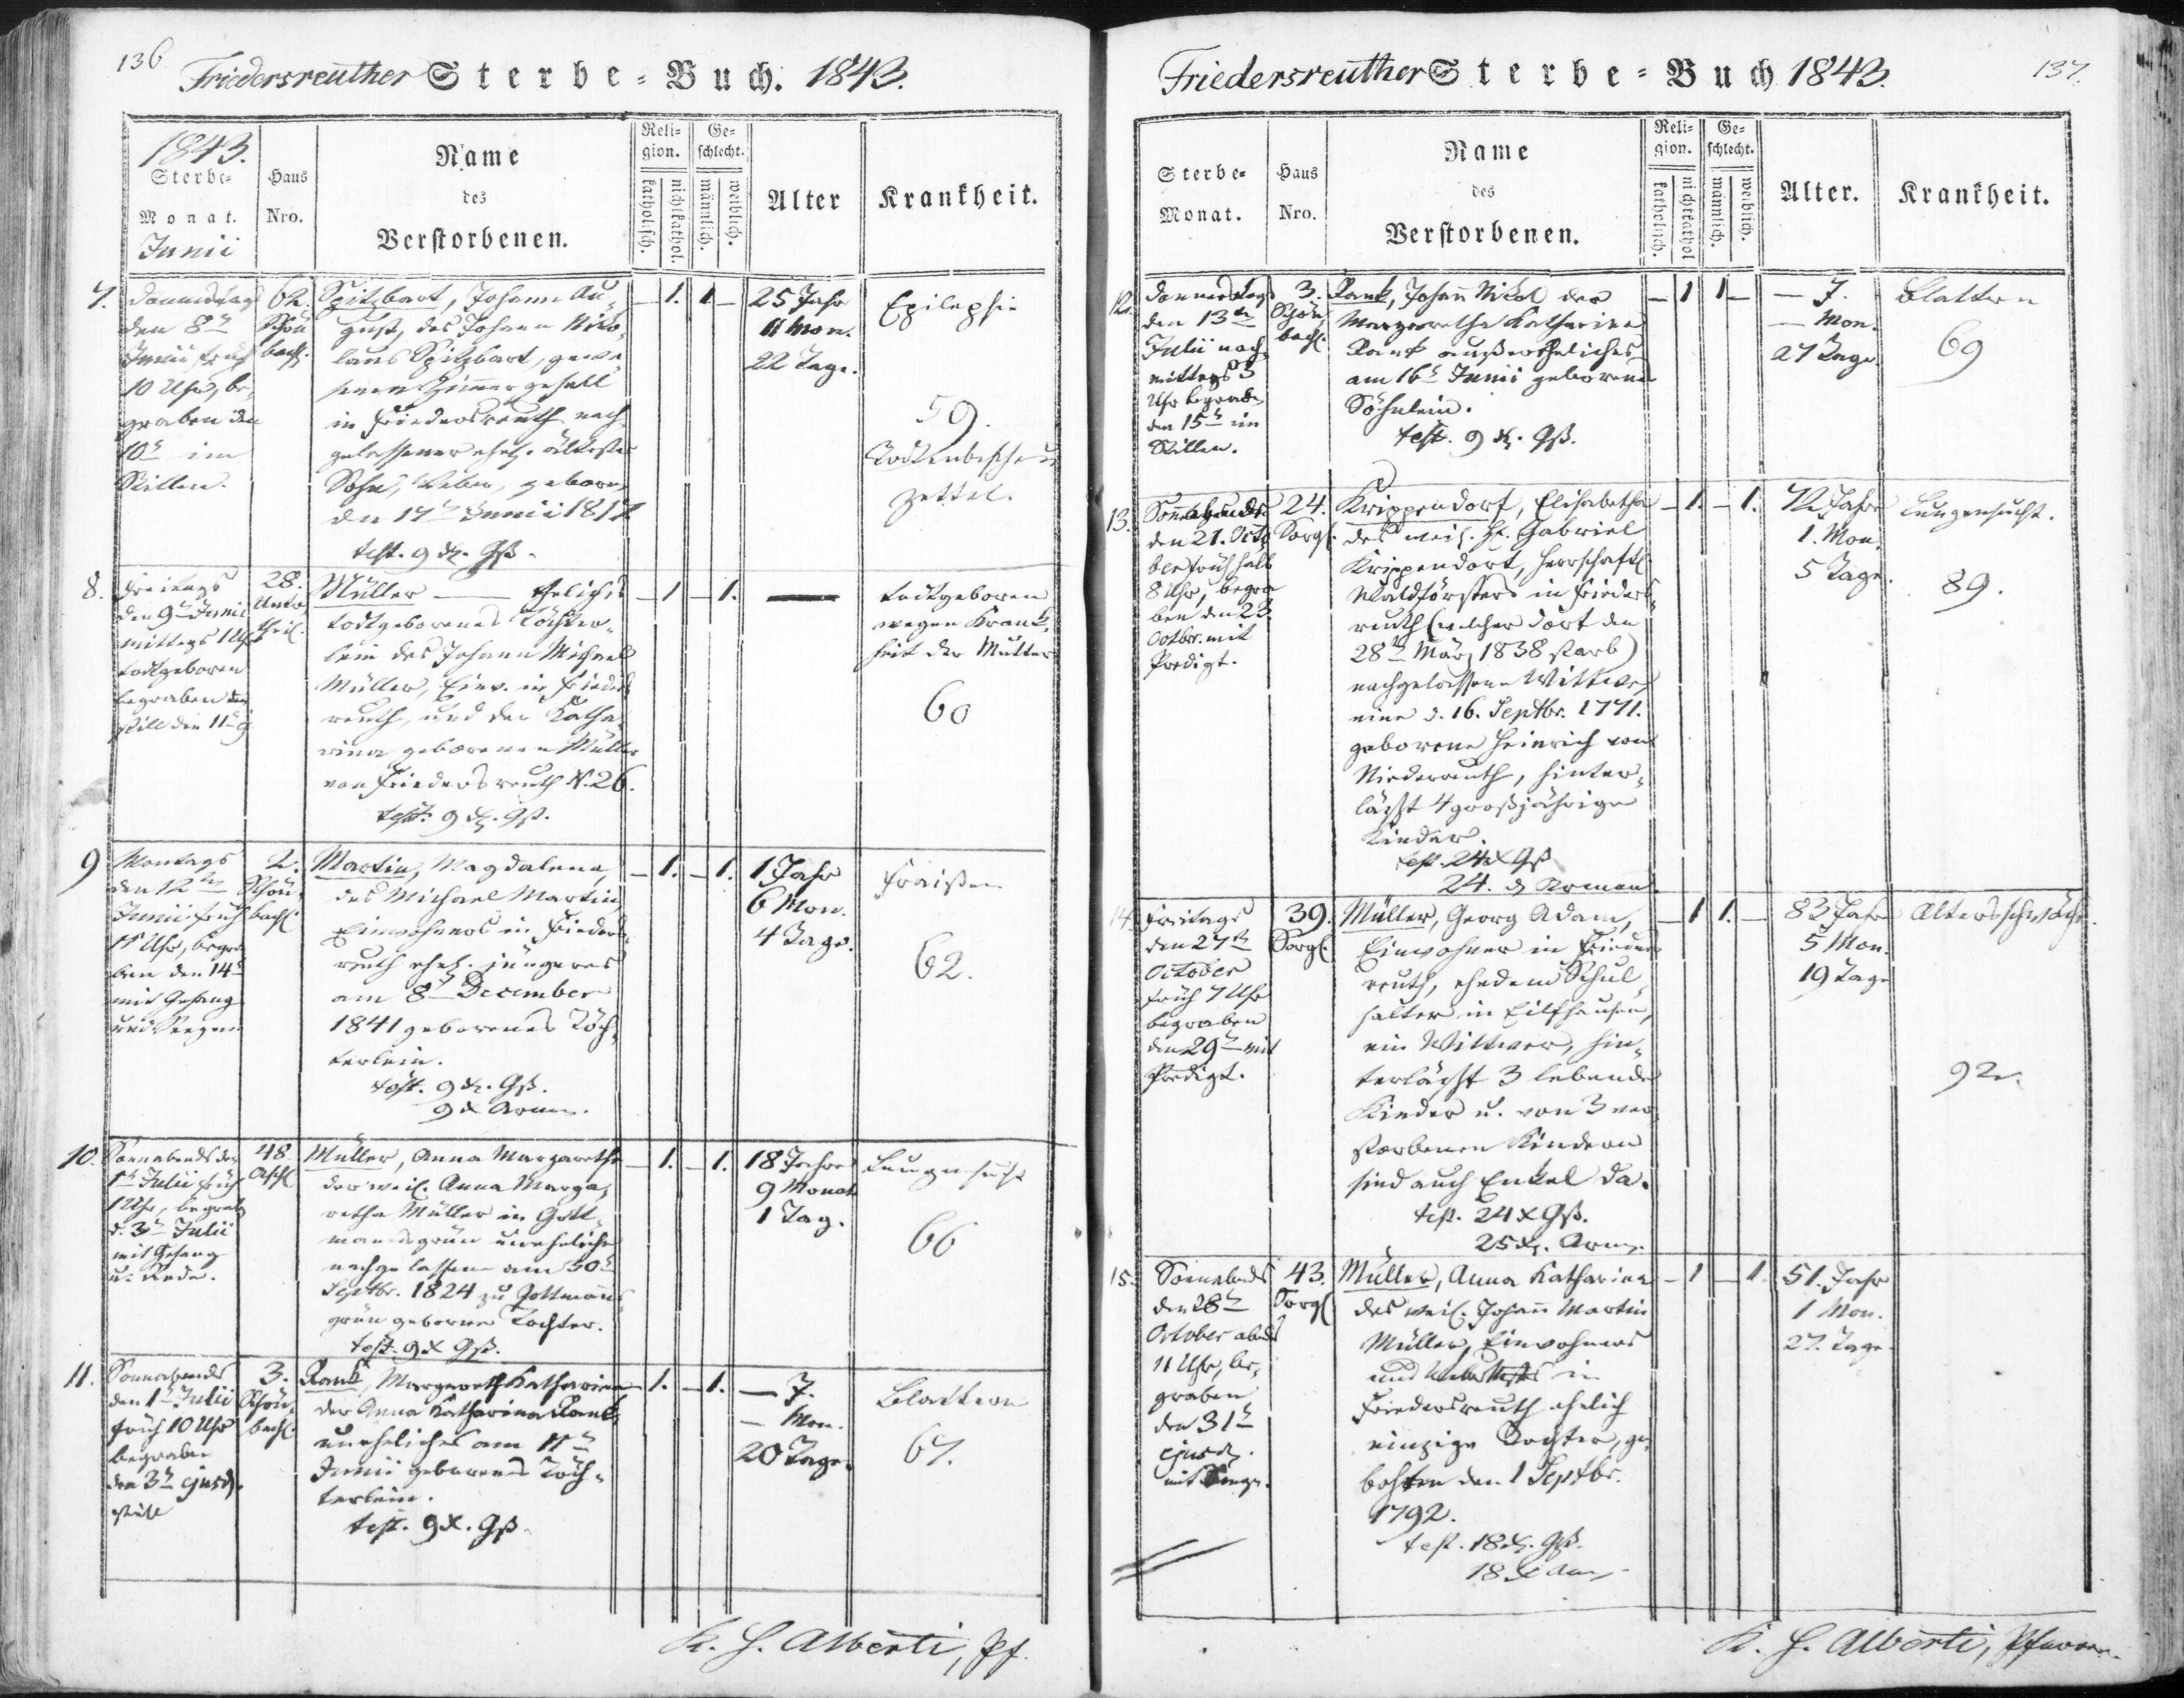 136.
Friedersreuther Sterbe-Buch. 1843.
1843.
Sterbe-
Monat.
Junii
Haus
Nro.
Name
des
Verstorbenen.
Reli-
gion.
katholisch.
nichtkathol.
Ge-
schlecht.
männlich.
weiblich.
Alter
Krankheit.
7.
Donnerstags
den 8ten
Junii früh
10 Uhr, be-
graben den
10t im
Stillen.
62.
Schön
bach.
Spitzbart, Johann Au-
gust, des Johann Niko-
laus Spitzbart, gewe-
senen Zimmergesell
in Friedersreuth nach-
gelassener ehel. ältester
Sohn, Weber, geboren
den 17ten Junii 1817.
test. 9 x. Gß.
1. 1
25 Jahr
11 Mon.
22 Tage.
Epilepsie
59.
Todtenbeschau
zettel.
8.
Freitags
den 9t Junii
mittags 1 Uhr
todtgeboren
begraben
still den 11t
28.
Unter
theil.
Müller — ehelich
todtgeborenes Töchter-
lein des Johann Michael
Müller, Einw. in Frieders
reuth, und der Katha-
rina geborenen Müller
von Friedersreuth N. 26.
test. 9 x. Gß.
1 1.
todtgeboren
wegen Krank-
heit der Mutter
60
9
Montags
den 12ten
Junii früh
11 Uhr, begra-
ben den 14t
mit Gesang
und Seegen
2.
Schön-
bach.
Martin, Magdalena,
des Michael Martin,
Einwohners in Frieders-
reuth ehel. jüngeres
am 8t December
1841 geborenes Töch-
terlein.
test. 9 x. Gß.
9 x Armen.
1. 1.
1 Jahr
6 Mon.
4 Tage.
Fraißen
62.
10.
Sonnabends den
1t Julii früh
1 Uhr, begrab.
d. 3t Julii
mit Gesang
u. Rede.
48.
Asch
Müller, Anna Margaretha
der weil. Anna Marga-
retha Müller in Gott-
mannsgrün uneheliche
nachgelassene am 30t
Septbr. 1824 zu Gottmanns-
grün geborene Tochter.
test. 9 x Gß.
1. 1.
18 Jahre
9 Monat
1 Tag.
Lungensucht
66
11.
Sonnabends
den 1t Julii
früh 10 Uhr
begraben
den 3t ejusd.
stille
3.
Schön-
bach.
Rank, Margareth Katharina
der Anna Katharina Rank,
uneheliches am 11t
Junii geborenes Töch-
terlein.
test. 9 x. Gß.
1. 1.
— J.
— Mon.
20 Tage.
Blattern
67.
K. H. Alberti, Pf.
Friedersreuther Sterbe-Buch 1843.
137.
Sterbe-
Monat.
Haus
Nro.
Name
des
Verstorbenen.
Reli-
gion.
katholisch.
nichtkathol
Ge-
schlecht.
männlich.
weiblich.
Alter.
Krankheit.
12.
Donnerstags
den 13ten
Julii nach-
mittags 3
Uhr begrab.
den 15t im
Stillen.
3.
Schön-
bach.
Rank, Johann Nikol der
Margaretha Katharina
Rank außereheliches
am 16t Junii geborene
Söhnlein.
test. 9 x. Gß.
1 1
— J.
— Mon.
27 Tage.
Blattern
69
13.
Sonnabends
den 21. Octo
ber früh halb
8 Uhr, begra
ben den 23.
Octbr. mit
Predigt.
24.
Sorg.
Krippendorf, Elisabetha
des weil. H. Gabriel
Krippendorf, herrschaftl.
Waldförsters in Frieders-
reuth (welcher dort den
28t März 1838 starb)
nachgelassene Wittwe,
eine d. 16. Septbr. 1771.
geborene Heinrich von
Niederreuth, hinter-
läßt 4 großjährige
Kinder.
test. 24 x Gß
24. x Armen
1. 1.
72 Jahr
1. Mon.
5 Tage.
Lungensucht.
89.
14.
Freitags
den 27t
October
früh 7 Uhr
begraben
den 29t mit
Predigt.
39.
Sorg.
Müller, Georg Adam,
Einwohner in Frieders
reuth, ehedem Schul-
halter in Eilfhausen,
ein Wittwer, hin-
terläßt 3 lebende
Kinder u. von 3 ver-
storbenen Kindern
sind auch Enkel da.
test. 24 x Gß.
25 x. Arm.
1 1.
83 Jahr
5 Mon.
19 Tage
Altersschwäche.
92.
15.
Sonnabends
den 28t
October abends
11 Uhr, be-
graben
den 31t
ejusd.
mit Seegen.
43.
Sorg
Müller, Anna Katharina
des weil. Johann Martin
Müller, Einwohners
und Webers in
Friedersreuth ehelich
einzige Tochter, ge-
bohren den 1 Septbr.
1792.
test. 18 x. Gß.
18 x Arm.
1 1
51. Jahr
1 Mon.
27. Tage
K. H. Alberti, Pfarrer.